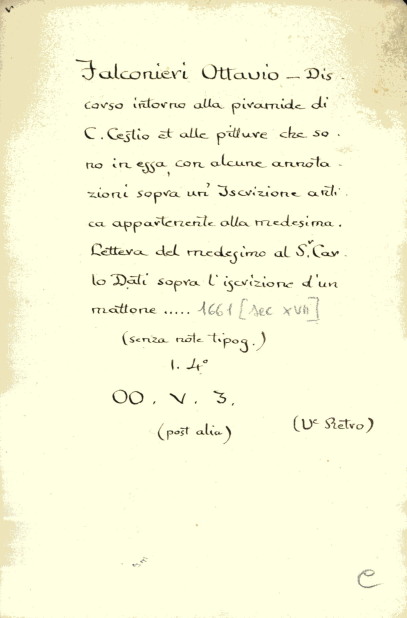 Falconieri Ottavio – Dis-
corso intorno alla piramide di
C. Cestio et alle pitture che so-
no in essa, con alcune annota-
zioni sopra un' Iscrizione anti-
ca appartenente alla medesima.
Lettera del medesimo al S.r Car-
lo Dati sopra l'iscrizione d'un
mattone ..... 1661 [sec XVII]
(senza note tipog.)
1. 4°
OO. V. 3.
(post alia)
(Vc Pietro)
C